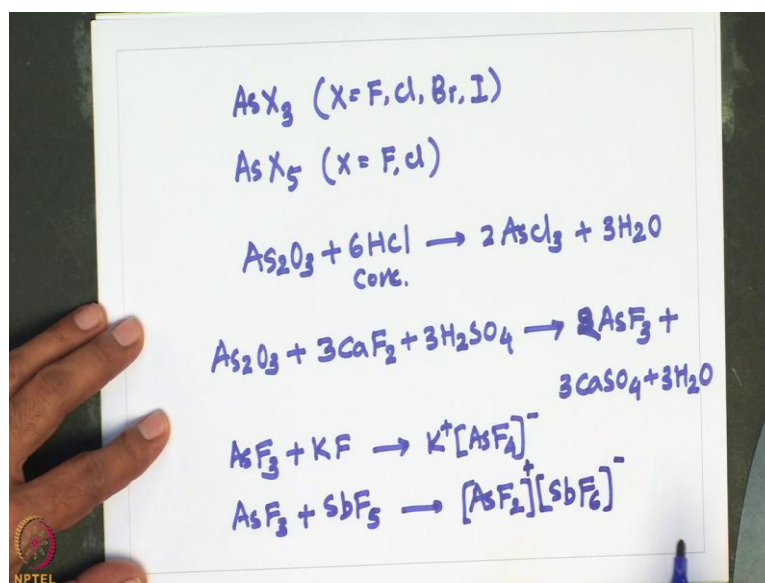 AsX₃ (X = F, Cl, Br, I)
AsX₅ (X = F, Cl)
As₂O₃ + 6HCl → 2AsCl₃ + 3H₂O
Conc.
As₂O₃ + 3CaF₂ + 3H₂SO₄ → 2AsF₃ +
3CaSO₄ + 3H₂O
AsF₃ + KF → K⁺[AsF₄]⁻
AsF₃ + SbF₅ → [AsF₂]⁺[SbF₆]⁻
NPTEL